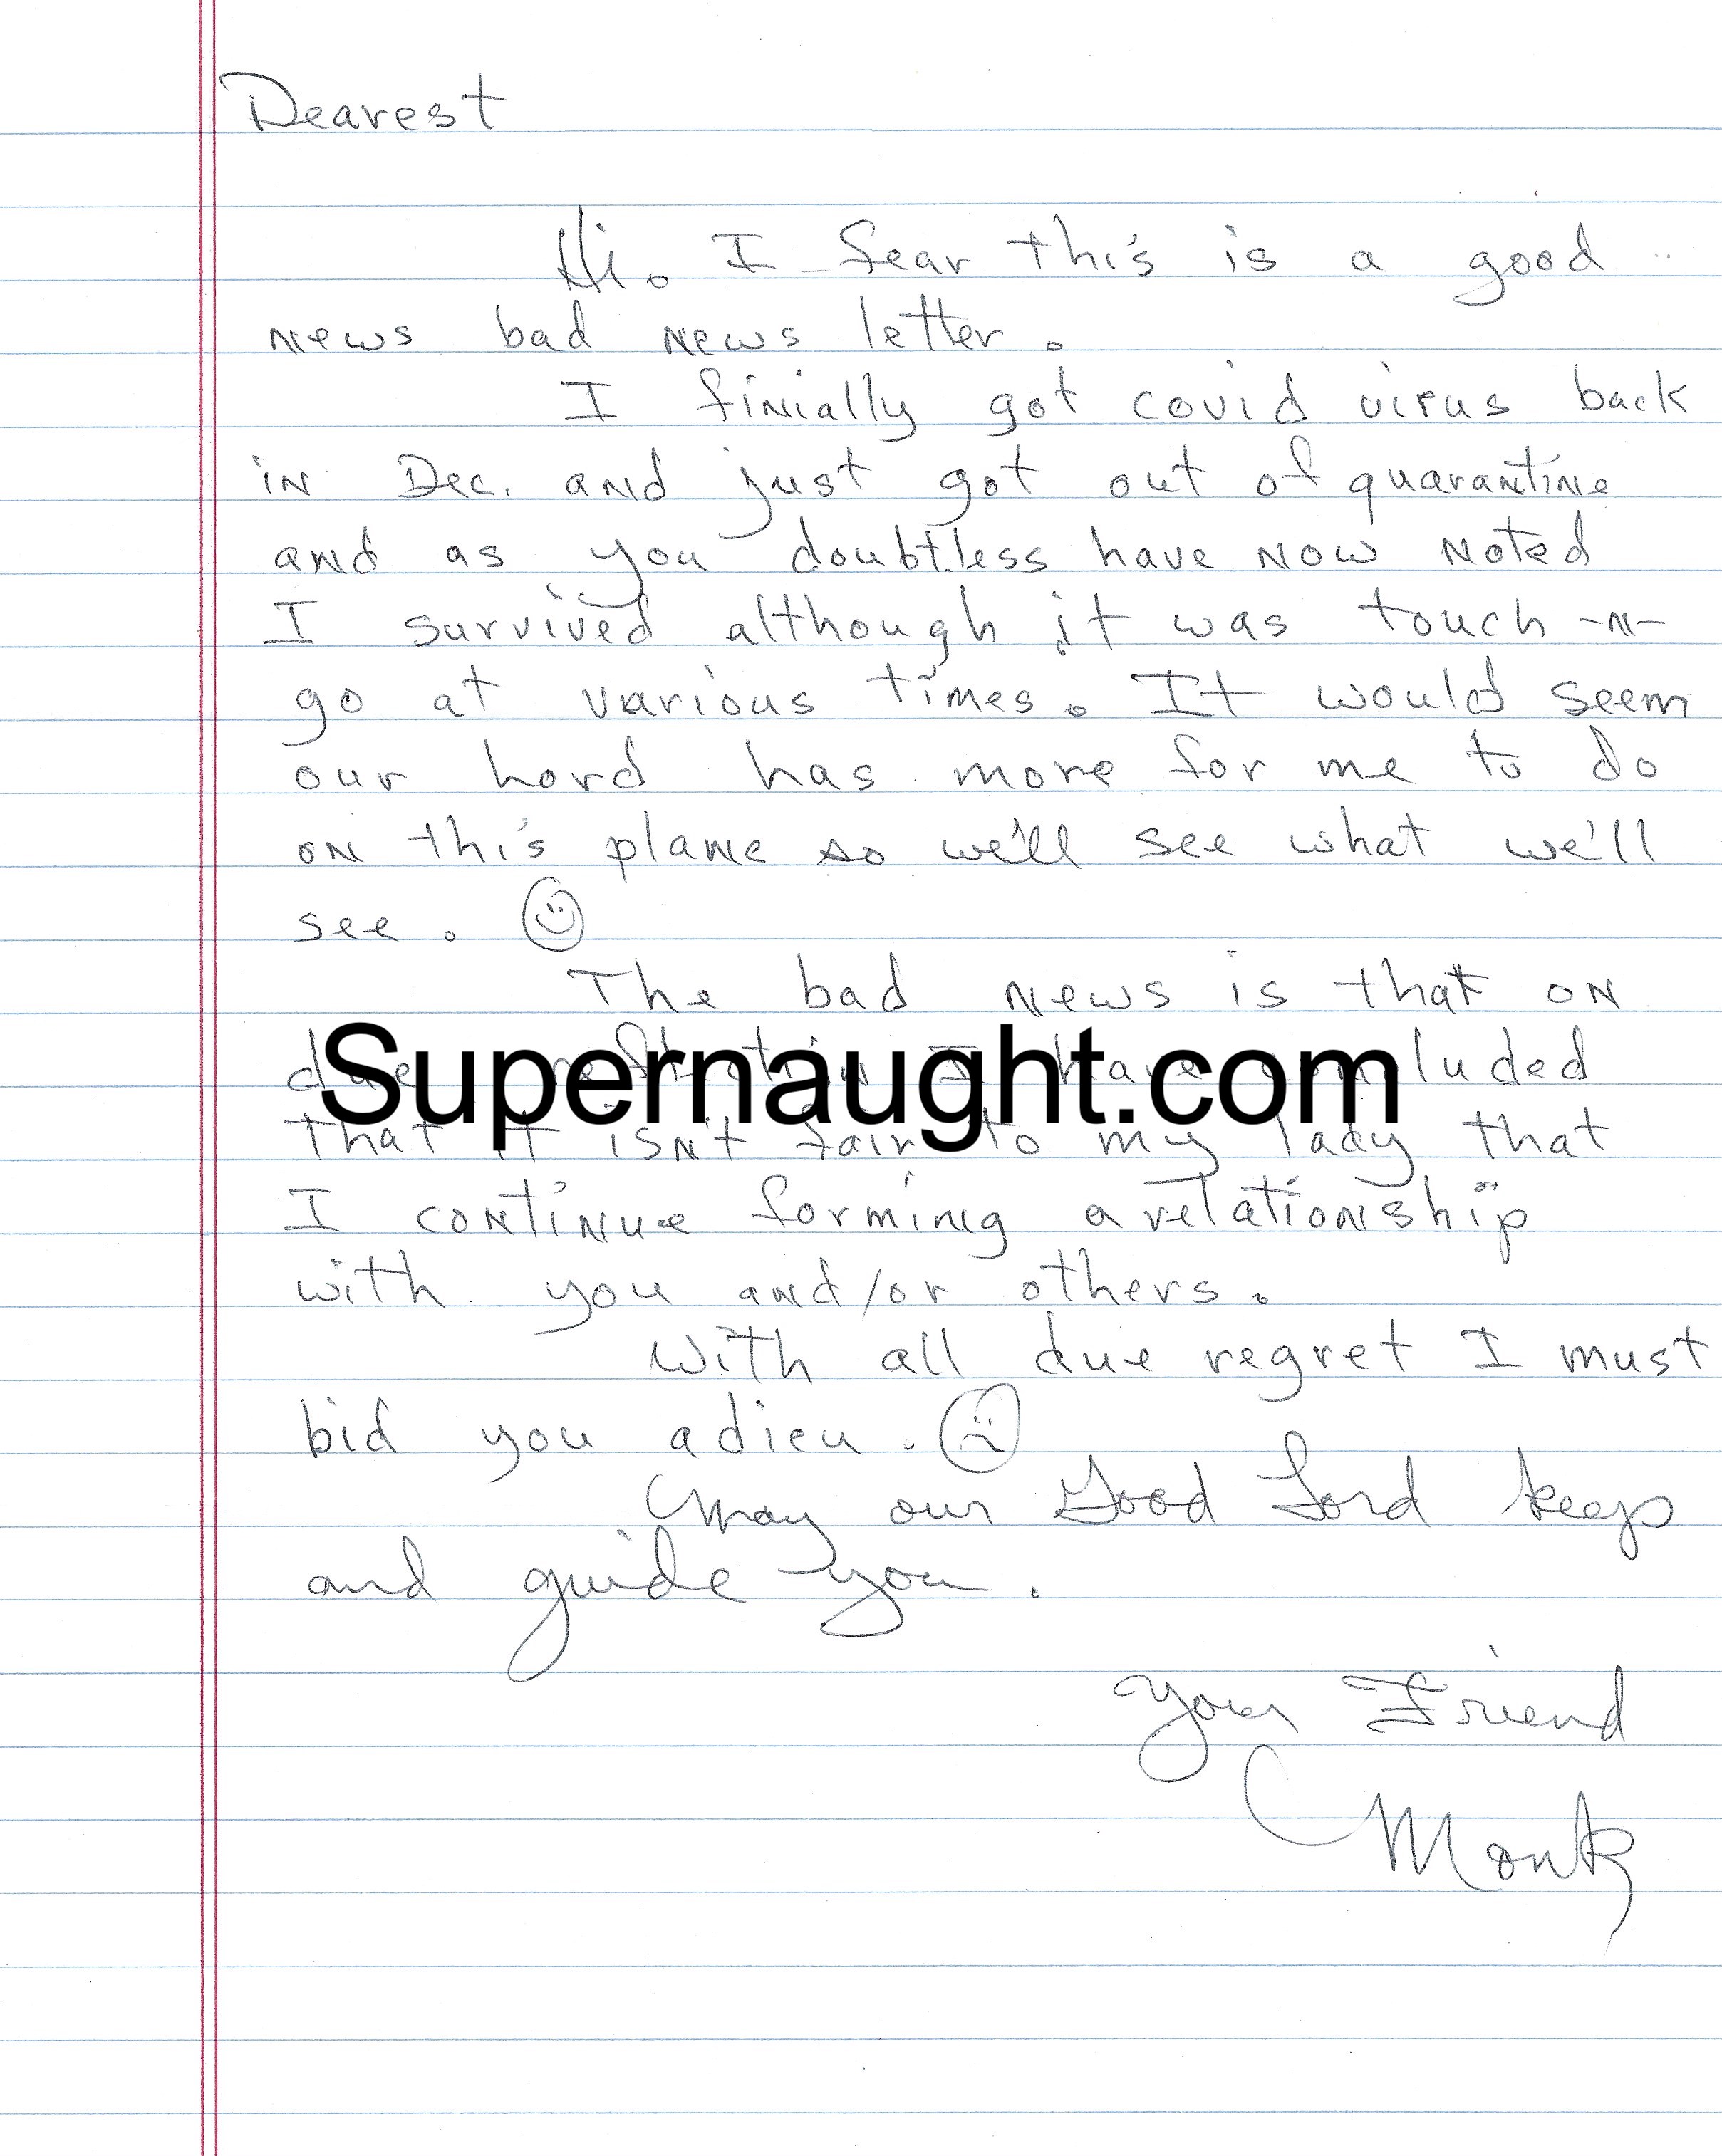 Dearest
Hi. I fear this is a good
news bad news letter.
I finially got covid virus back
in Dec. and just got out of quarantine
and as you doubtless have now noted
I survived although it was touch-n-
go at various times. It would seem
our Lord has more for me to do
on this plane so we'll see what we'll
see. ☺
The bad news is that on
due reflection I have concluded
Supernaught.com
that it isn't fair to my lady that
I continue forming a relationship
with you and/or others.
With all due regret I must
bid you adieu. ☹
May our Good Lord keep
and guide you.
Your Friend
Monk